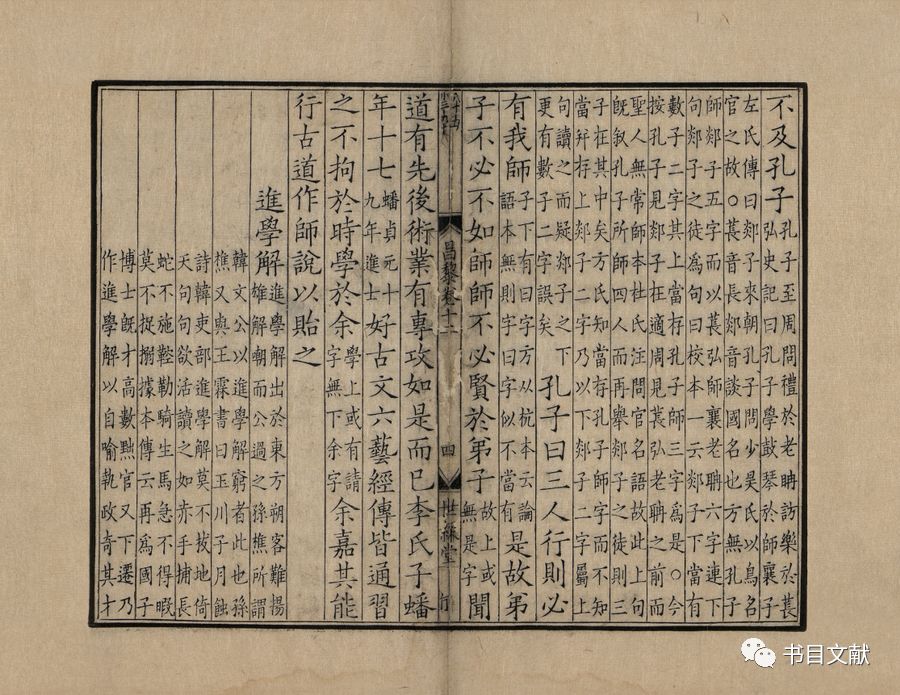 不及孔子孔子至周問禮於老聃訪樂於萇
弘史記曰孔子學鼓琴於師襄子
左氏傳曰郯子來朝孔子問少昊氏以鳥名
官之故○萇音長郯音談國名也方無孔子
師郯子五字而以萇弘師襄老聃六字連下
句郯子之徒爲句曰校本一云郯子下當有
數子二字其上當存孔子師三字爲是○今
按孔子見郯子在適周見萇弘老聃之前而
聖人無常師本杜氏注問官名語故此上句
既敘孔子所師四人而再舉郯子之徒則三
子在其中矣方氏知當存孔子師字而不知
當幷存上郯子二字乃以下郯子二字屬上
句讀之而疑郯子之下
更有數子二字誤矣孔子曰三人行則必
有我師子下有曰字方從杭本云論
語本無則字曰字似不當有是故弟
子不必不如師師不必賢於弟子故上或
無是字聞
昌黎卷十二
四
世綵堂
道有先後術業有專攻如是而已李氏子蟠
年十七蟠貞元十
九年進士好古文六藝經傳皆通習
之不拘於時學於余學上或有請
字無下余字余嘉其能
行古道作師說以貽之
進學解進學解出於東方朔客難揚
雄解嘲而公過之孫樵所謂
韓文公以進學解窮者此也孫
樵又與王霖書曰玉川子月蝕
詩韓吏部進學解莫不拔地倚
天句句欲活讀之如赤手捕長
蛇不施鞚勒騎生馬急不得暇
莫不捉搦據本傳云再爲國子
博士既才高數黜官又下遷乃
作進學解以自喻執政奇其才
书目文献